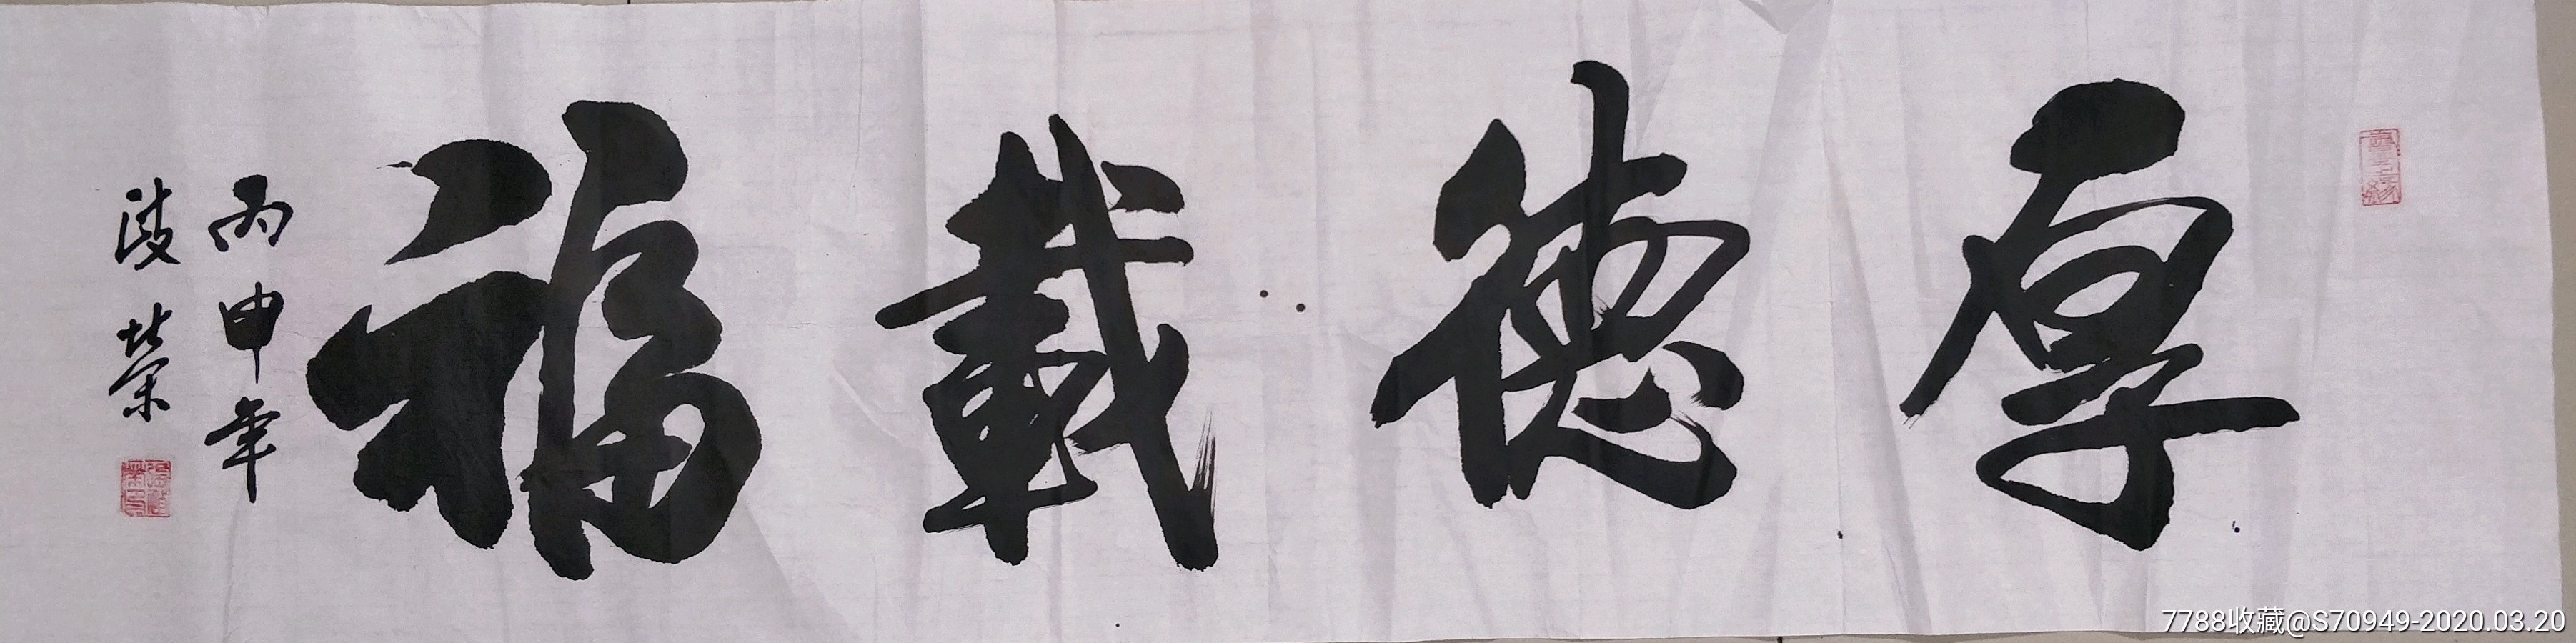 厚德載福
丙申年
榮
7788收藏@S70949-2020.03.20